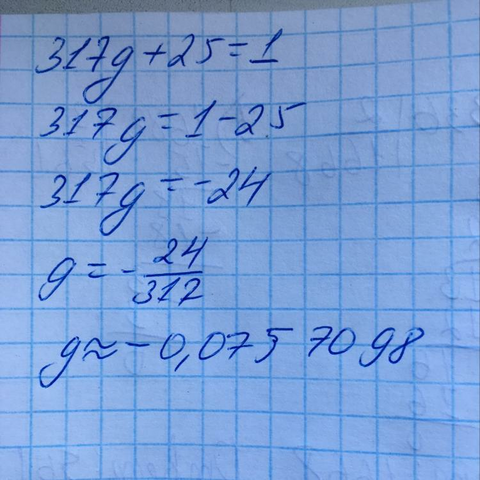 317g+25=1
317g=1-25
317g=-24
g=-24/317
g≈-0,0757098